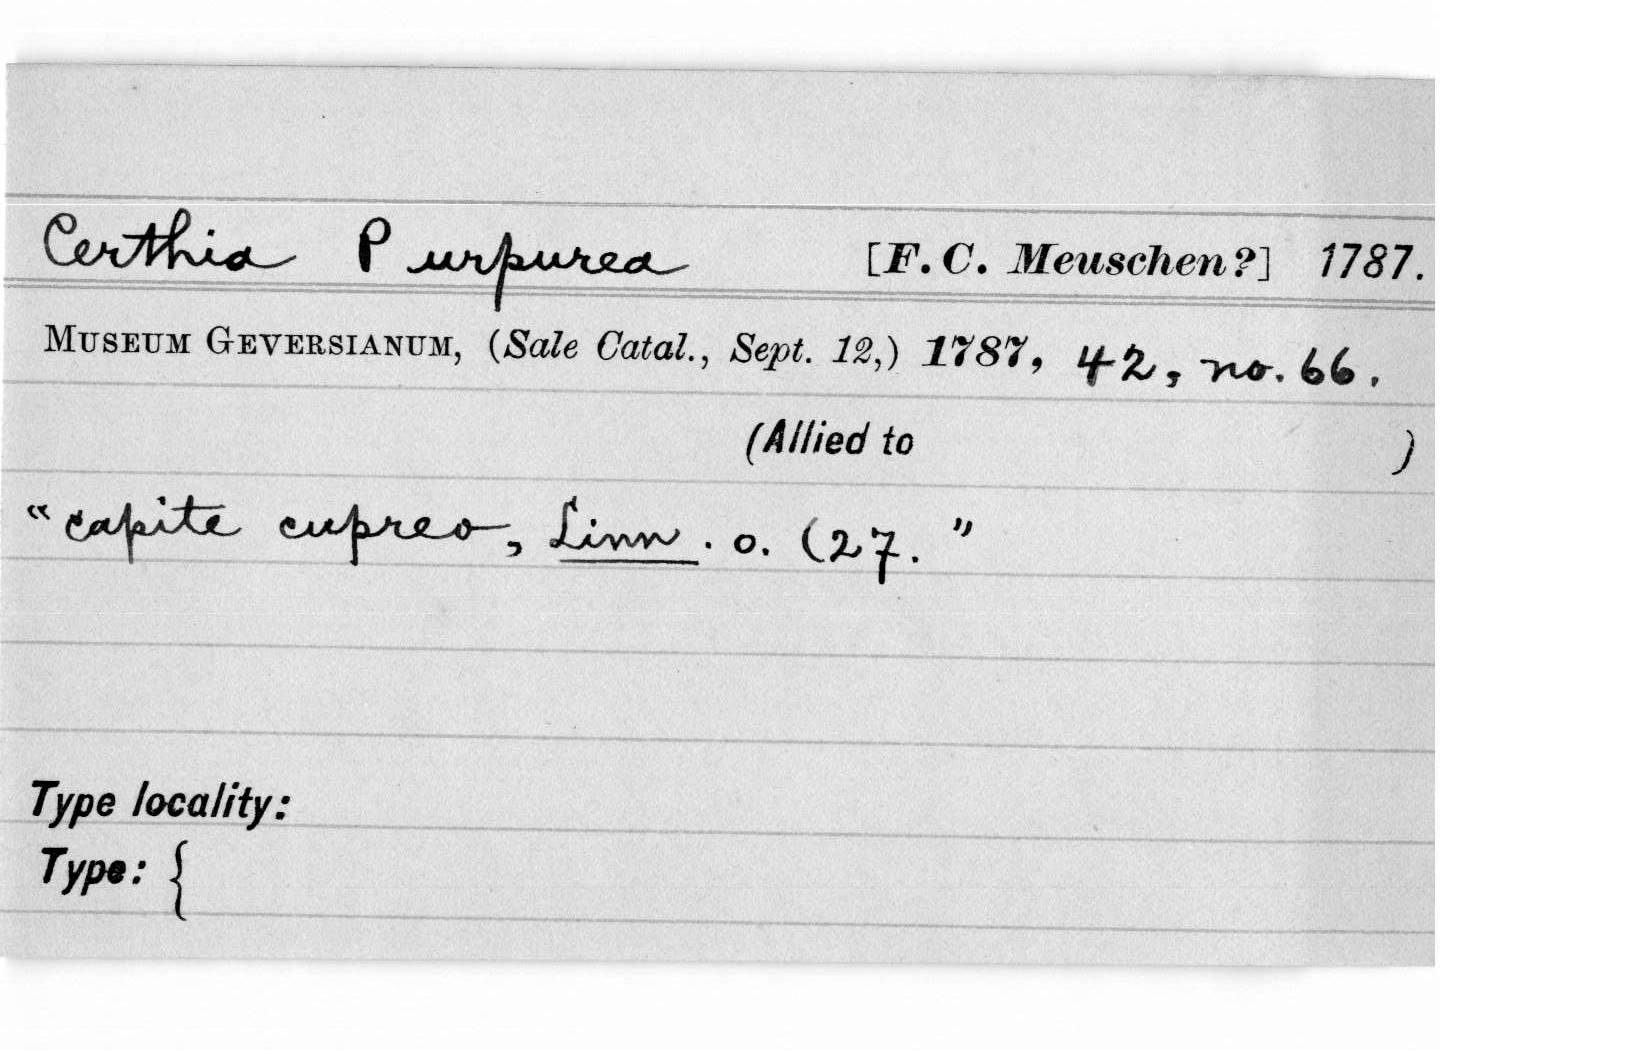 Certhia Purpurea [F. C. Meuschen?] 1787.
MUSEUM GEVERSIANUM, (Sale Catal., Sept. 12,) 1787, 42, no. 66.
(Allied to )
"capite cupreo, Linn. o. (27."
Type locality:
Type: {